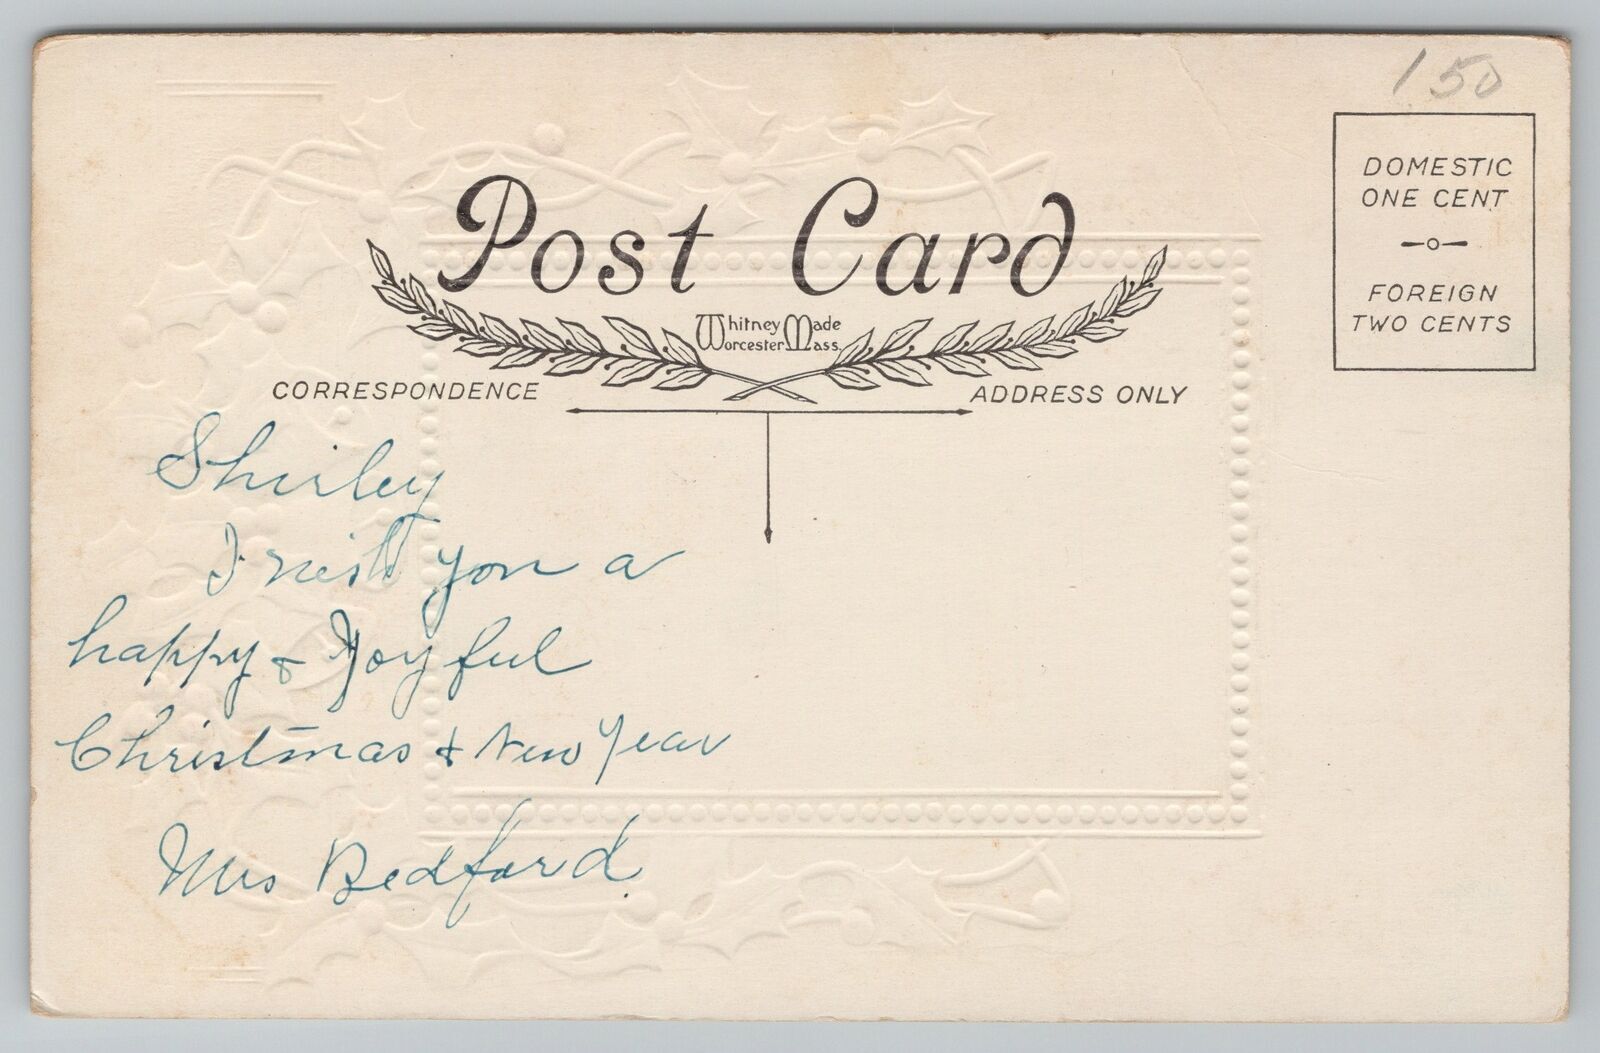 150
Post Card
Whitney Made
Worcester Mass.
DOMESTIC
ONE CENT
FOREIGN
TWO CENTS
CORRESPONDENCE
ADDRESS ONLY
Shirley
I you a
happy & Joyful
Christmas & New Year
Mrs Bedford.